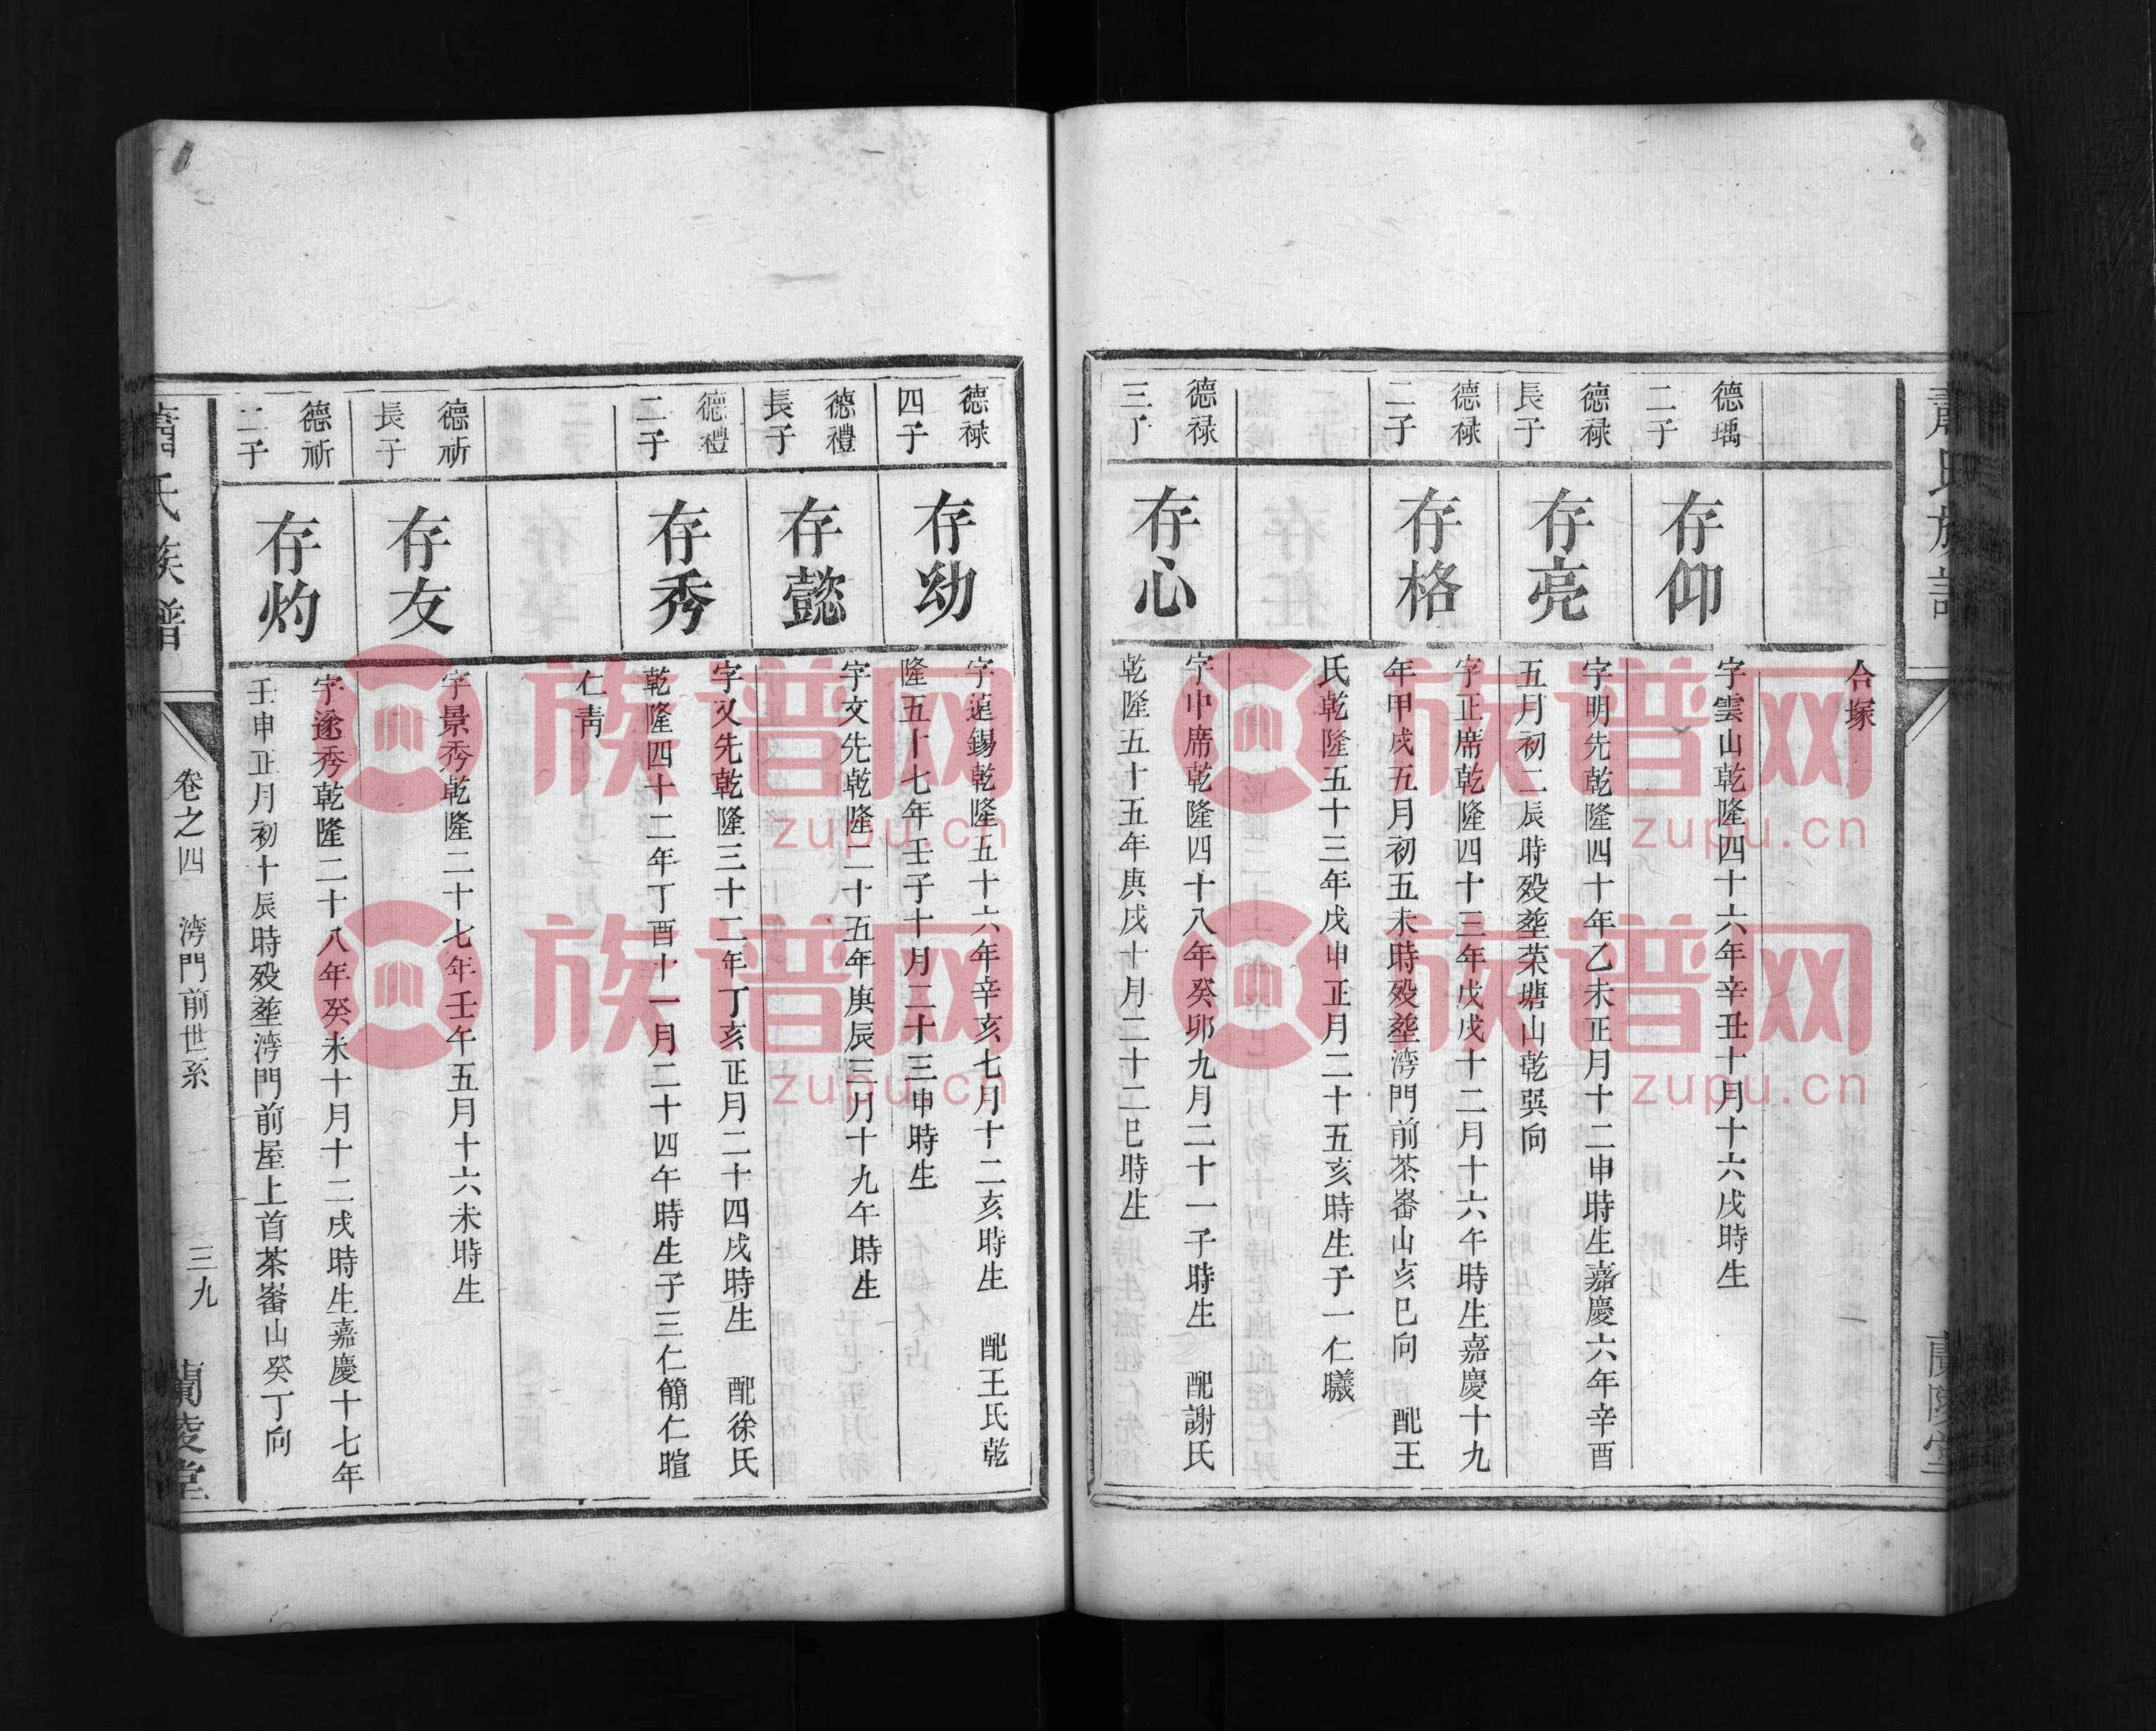 蕭氏族譜
蘭陵堂
合塚
德瑀
二子
存仰
字雲山乾隆四十六年辛丑十月十六戌時生
德禄
長子
存亮
字明先乾隆四十年乙未正月十二申時生嘉慶六年辛酉
五月初二辰時殁塟荣塘山乾巽向
德禄
二子
存格
字正席乾隆四十三年戊戌十二月十六午時生嘉慶十九
年甲戌五月初五未時殁塟湾門前茶畨山亥巳向 配王
氏乾隆五十三年戊申正月二十五亥時生子一仁曦
德禄
三子
存心
字中席乾隆四十八年癸卯九月二十一子時生 配謝氏
乾隆五十五年庚戌十月二十二巳時生
德禄
四子
存幼
字 錫乾隆五十六年辛亥七月十二亥時生 配王氏乾
隆五十七年壬子十月二十三申時生
德禮
長子
存懿
字文先乾隆二十五年庚辰三月十九午時生
德禮
二子
存秀
字又先乾隆三十二年丁亥正月二十四戌時生 配徐氏
乾隆四十二年丁酉十一月二十四午時生子三仁簡仁暄
仁青
德祈
長子
存友
字景秀乾隆二十七年壬午五月十六未時生
德祈
二子
存灼
字遂秀乾隆二十八年癸未十月十二戌時生嘉慶十七年
壬申正月初十辰時殁塟湾門前屋上首茶畨山癸丁向
蕭氏族譜
卷之四 湾門前世系 三九
蘭陵堂
族谱网
zupu.cn
族谱网
zupu.cn
族谱网
zupu.cn
族谱网
zupu.cn